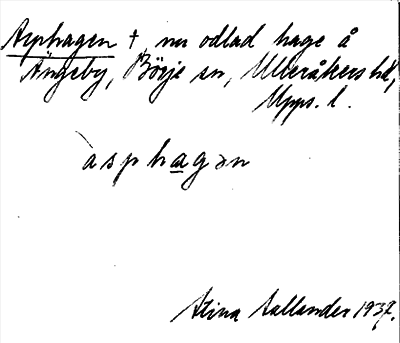 Asphagen † nu odlad hage å
Ängeby, Börje sn, Ulleråkers hd,
Upps. l.
`asphagən
Stina Sallander 1937.